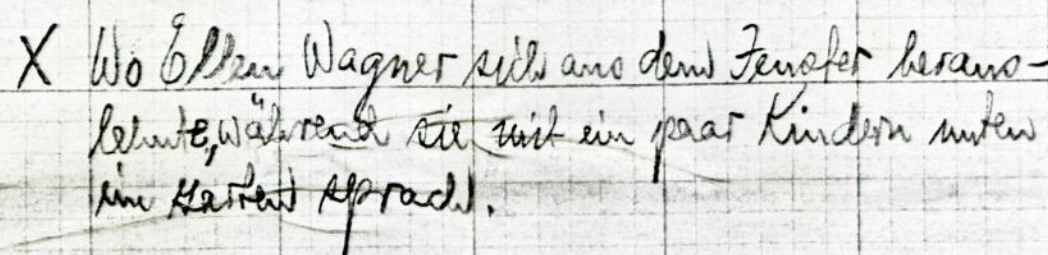 X Wo Ellen Wagner sich aus dem Fenster heraus-
lehnte, während sie mit ein paar Kindern unten
im Garten sprach.